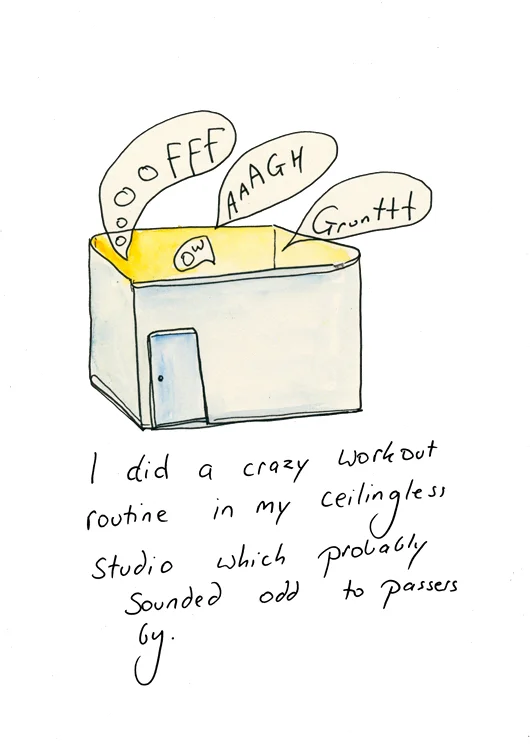 oooOFFF
AAAAGH
Grunttt
OW
I did a crazy workout
routine in my ceilingless
Studio which probably
Sounded odd to passers
by.